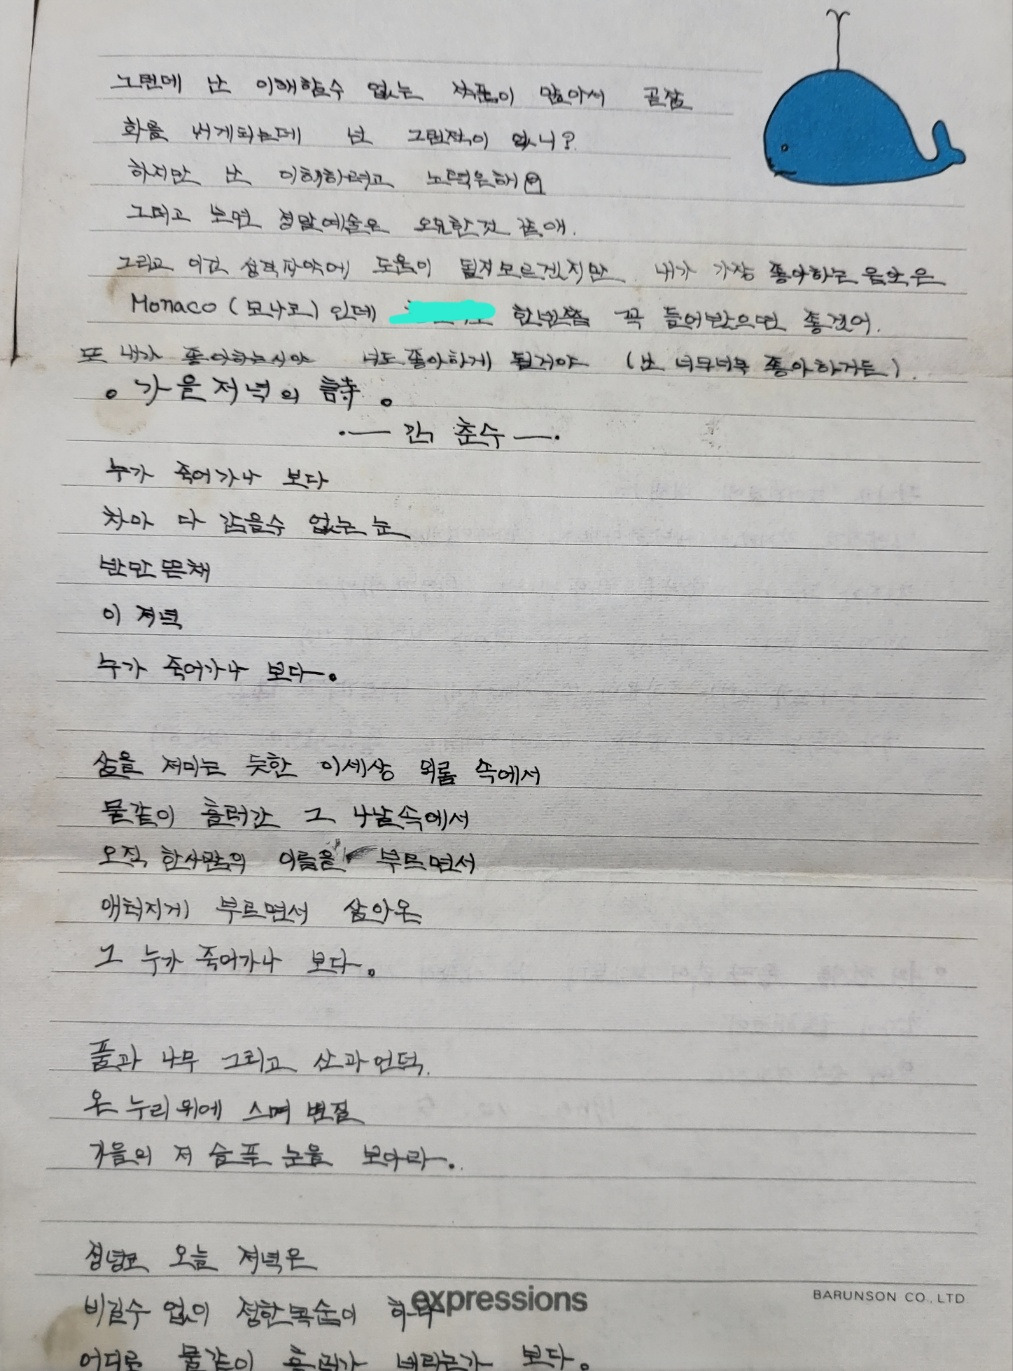 그런데 난 이해할수 없는 작품이 많아서 곧잘
화를 내게되는데 넌 그런적이 없니?
하지만 난 이해하려고 노력은해
그리고 보면 정말예술은 오묘한것 같애.
그리고 이건 성격파악에 도움이 될지모르겠지만 내가 가장 좋아하는 음악은
Monaco (모나코) 인데 한번쯤 꼭 들어봤으면 좋겠어.
또 내가 좋아하는시야 너도좋아하게 될거야 (난 너무너무 좋아하거든).
。가을저녁의 詩 。
·— 김 춘수 —·
누가 죽어가나 보다
차마 다 감을수 없는 눈
반만 뜬채
이 저녁
누가 죽어가나 보다.
살을 저미는 듯한 이세상 외롬 속에서
물같이 흘러간 그 나날속에서
오직 한사람의 이름을 부르면서
애터지게 부르면서 살아온
그 누가 죽어가나 보다.
풀과 나무 그리고 산과언덕.
온 누리위에 스며 번질
가을의 저 슬픈 눈을 보아라.
정녕코 오늘 저녁은
비길수 없이 정한목숨이 하나
어디로 물같이 흘러가 버리는가 보다.
expressions
BARUNSON CO., LTD